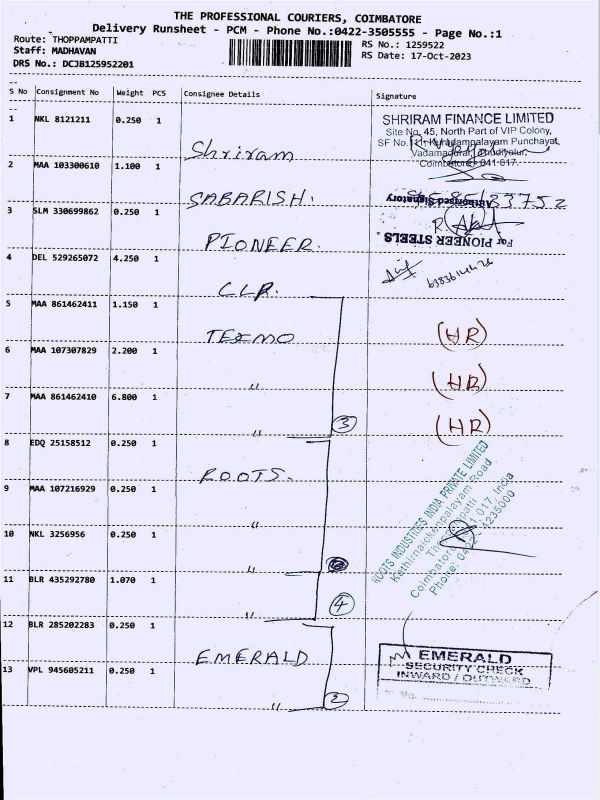 THE PROFESSIONAL COURIERS, COIMBATORE
Delivery Runsheet - PCM - Phone No.:0422-3505555 - Page No.:1
Route: THOPPAMPATTI
RS No.: 1259522
Staff: MADHAVAN
RS Date: 17-Oct-2023
DRS No.: DCJB125952201
S No Consignment No Weight PCS Consignee Details Signature
1 NKL 8121211 0.250 1 Shriram
SHRIRAM FINANCE LIMITED
Site No. 45, North Part of VIP Colony,
SF No. Kurudampalayam Punchayat,
Vadamadurai,
Coimbatore - 641 017.
2 MAA 103300610 1.100 1 SABARISH.
3 SLM 330699862 0.250 1 PIONEER.
Authorised Signatory
For PIONEER STEELS
4 DEL 529265072 4.250 1 CLR.
5 MAA 861462411 1.150 1 TEXMO (HR)
6 MAA 107307829 2.200 1 " (HR)
7 MAA 861462410 6.800 1 " 3 (HR)
8 EDQ 25158512 0.250 1 ROOTS.
9 MAA 107216929 0.250 1 "
10 NKL 3256956 0.250 1 "
11 BLR 435292780 1.070 1 " 4
ROOTS INDUSTRIES INDIA PRIVATE LIMITED
Kathirnaickenpalayam Road
Coimbatore 017, India
Phone: 0422 - 4235000
12 BLR 285202283 0.250 1 EMERALD
13 VPL 945605211 0.250 1 " 2
EMERALD
SECURITY CHECK
INWARD / OUTWARD